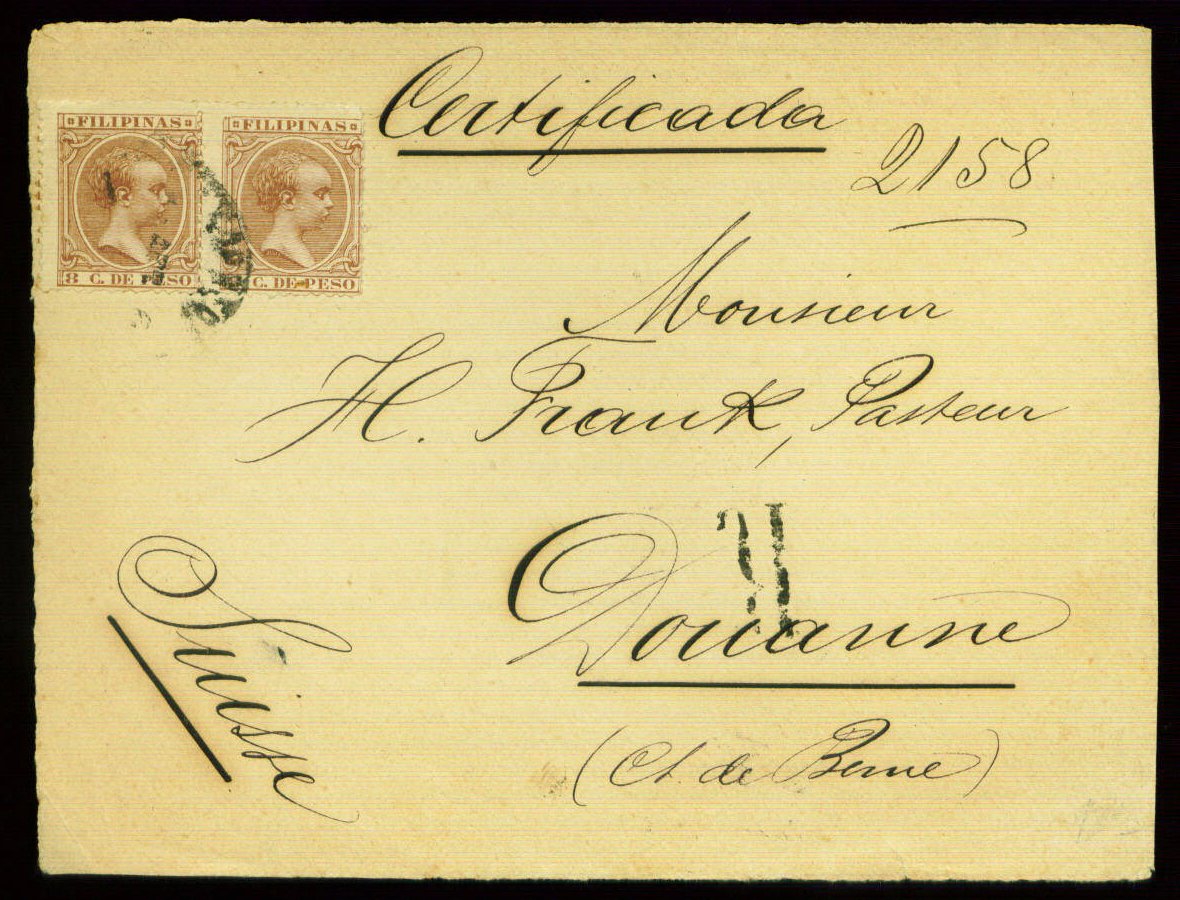 Certificada
2158
FILIPINAS
8 C. DE PESO
FILIPINAS
C. DE PESO
Monsieur
H. Frank, Pasteur
R
Douanne
(Ct. de Berne)
Suisse